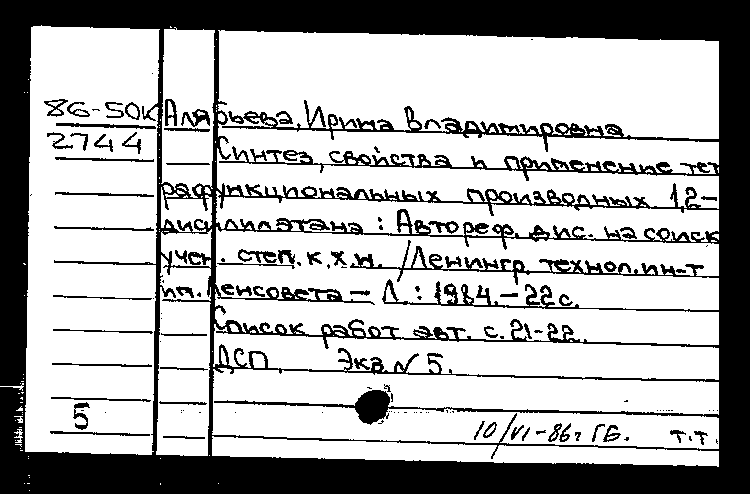 86-50К Алябьева, Ирина Владимировна.
2744 Синтез, свойства и применение тет
рафункциональных производных 1,2-
дисилилэтана : Автореф. дис. на соиск
учен. степ. к.х.н. / Ленингр. технол. ин-т
им. Ленсовета – Л. : 1984. – 22 с.
Список работ авт. с. 21-22.
ДСП. Экз. № 5.
5
10/VI-86г ГБ. Т.Т.